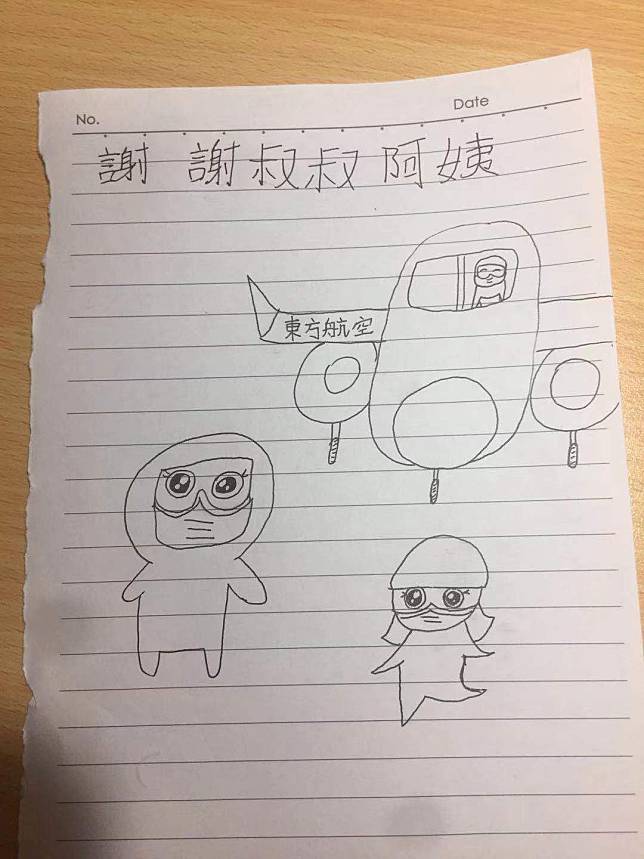 No.
Date
謝謝叔叔阿姨
東方航空